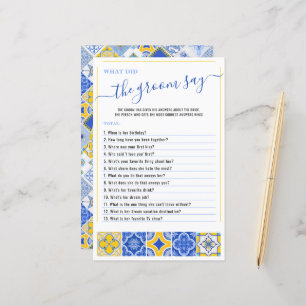 WHAT DID
the groom say
THE GROOM HAS GIVEN HIS ANSWERS ABOUT THE BRIDE.
THE PERSON WHO GETS THE MOST CORRECT ANSWERS WINS!
TOTAL:
1. When is her birthday?
2. How long have you been together?
3. Where was your first kiss?
4. Who said I love you first?
5. What's your favorite thing about her?
6. What chore does she hate the most?
7. What do you do that annoys her?
8. What does she do that annoys you?
9. What's her favorite drink?
10. What's her dream job?
11. What is the one thing she can't live without?
12. What is her dream vacation destination?
13. What is her favorite TV show?